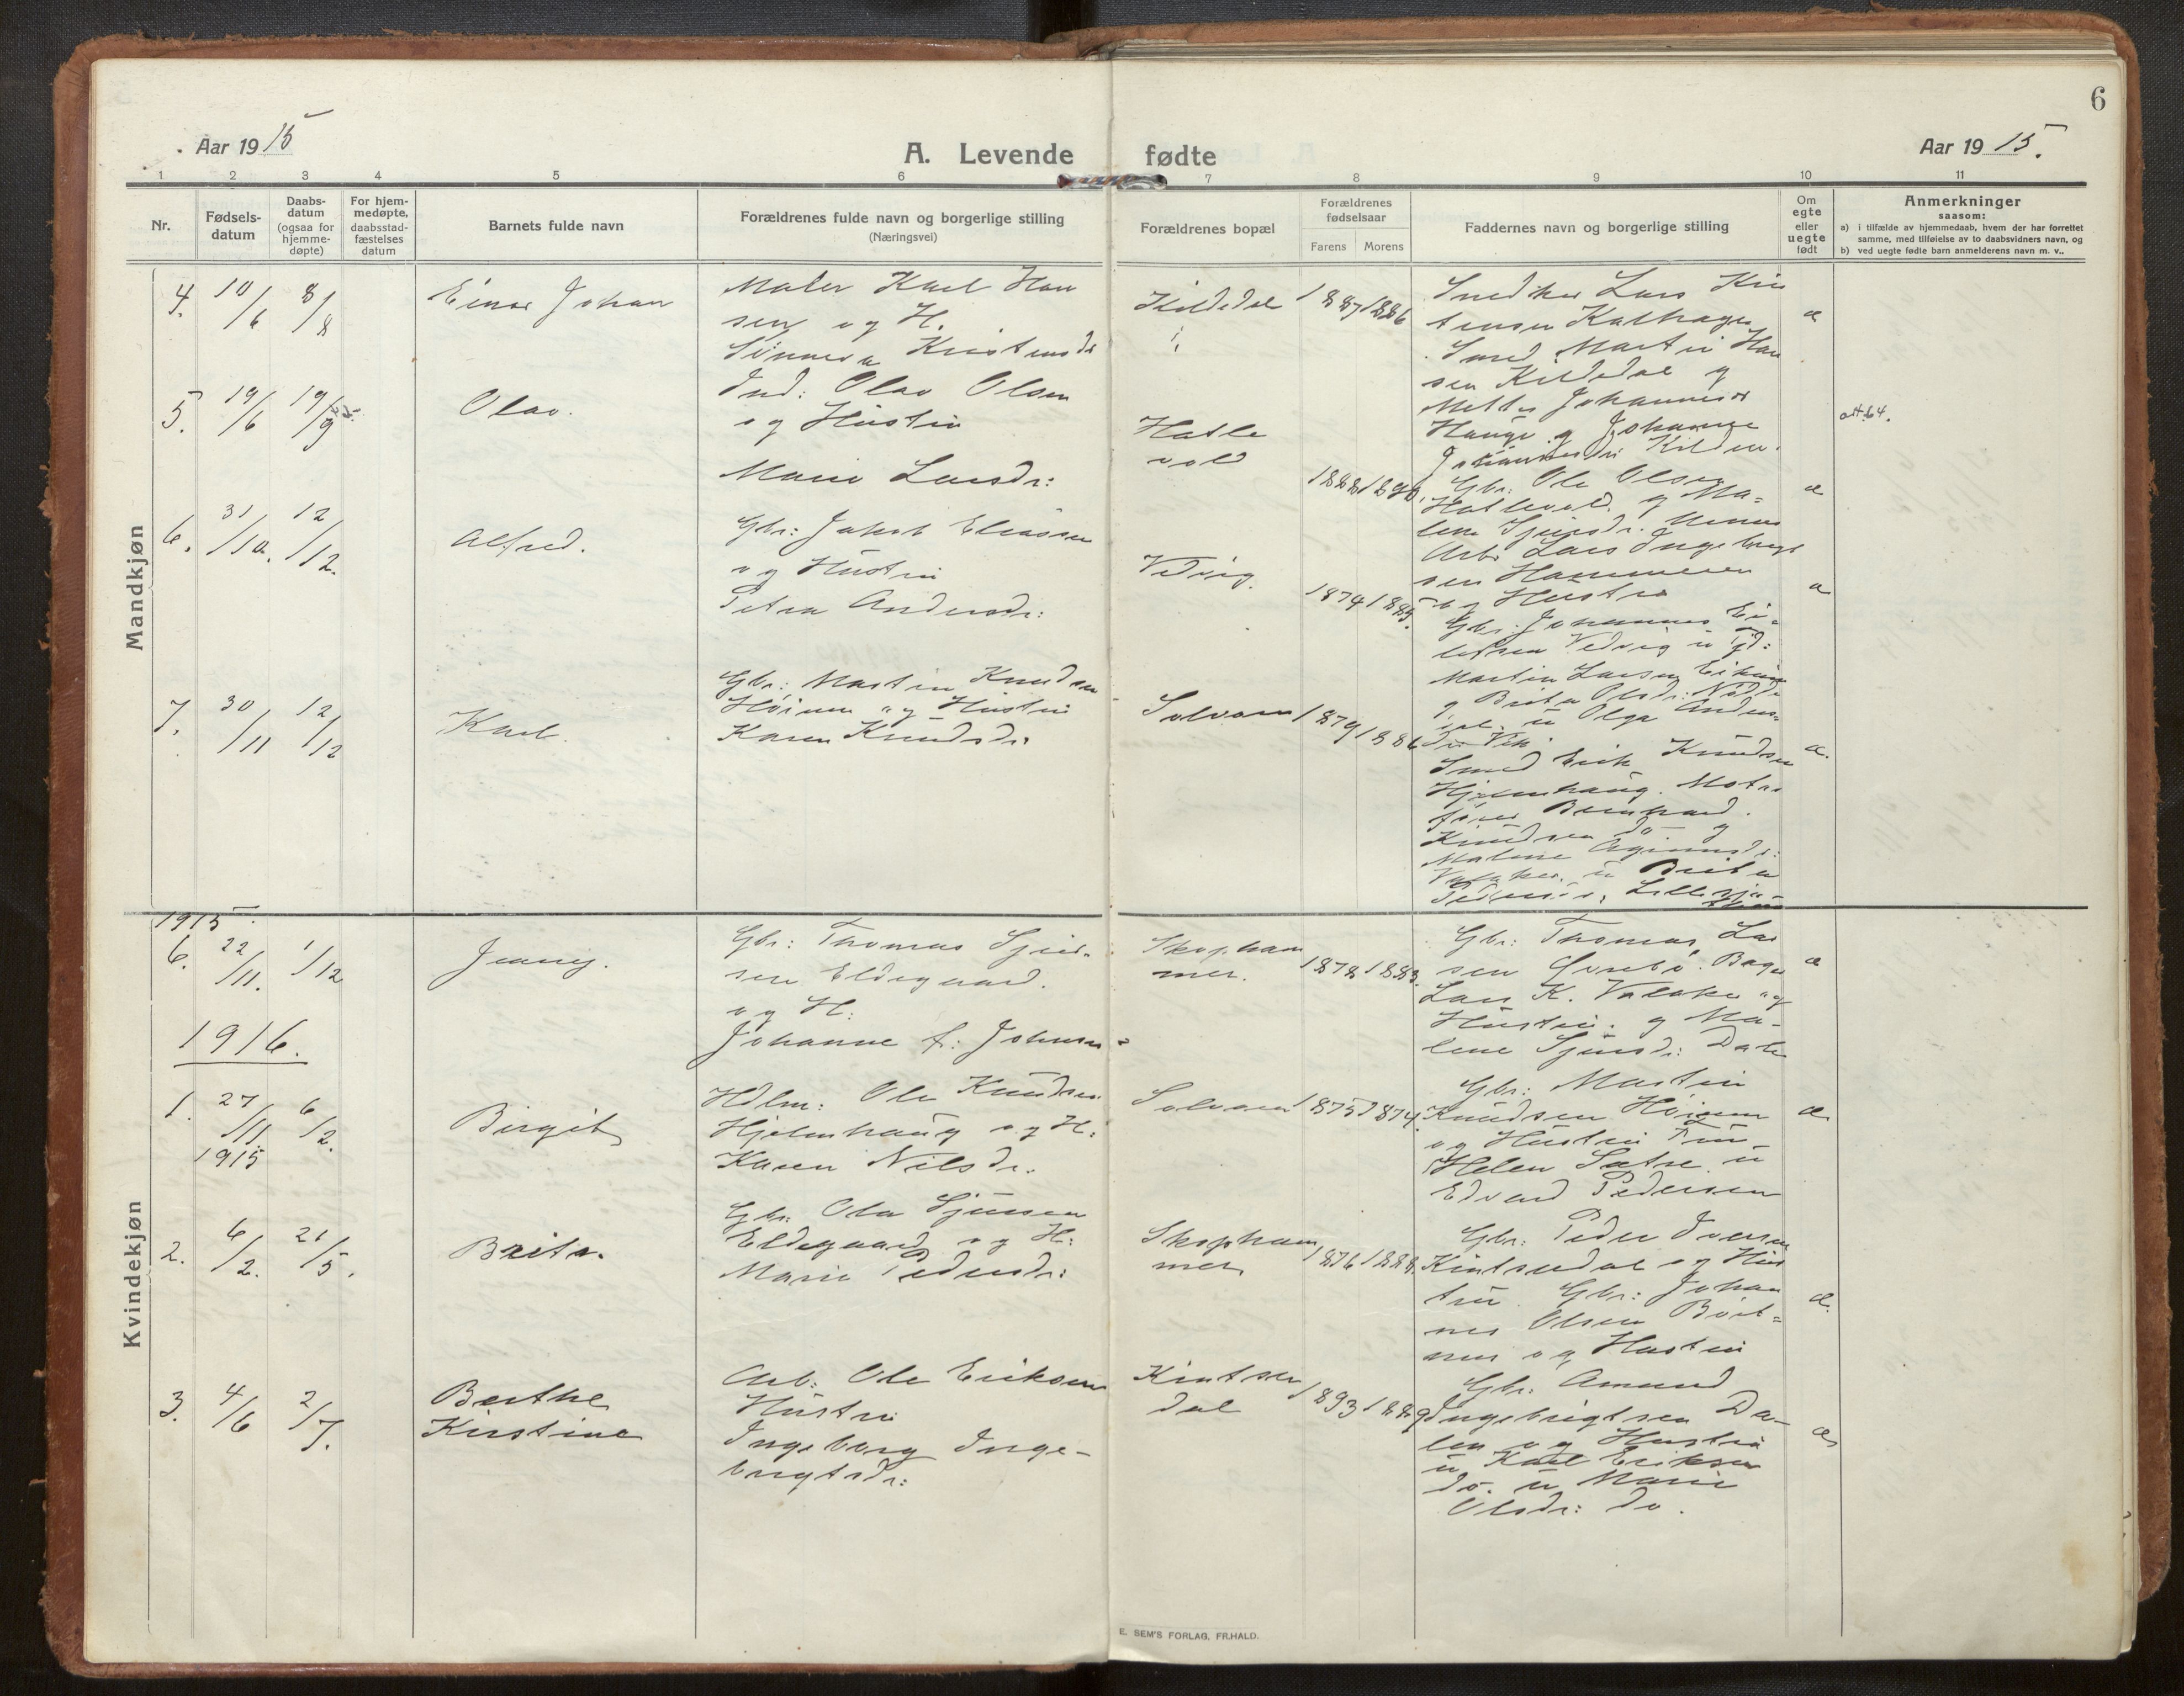 6
Aar 1915
A. Levende fødte
Aar 1915.
1 2 3 4 5 6 7 8 9 10 11
Nr.
Fødsels-
datum
Daabs-
datum
(ogsaa for
hjemme-
døpte)
For hjem-
medøpte,
daabsstad-
fæstelses
datum
Barnets fulde navn
Forældrenes fulde navn og borgerlige stilling
(Næringsvei)
Forældrenes bopæl
Forældrenes
fødselsaar
Farens Morens
Faddernes navn og borgerlige stilling
Om
egte
eller
uegte
født
Anmerkninger
saasom:
a) i tilfælde av hjemmedaab, hvem der har forrettet
samme, med tilføielse av to daabsvidners navn, og
b) ved uegte fødte barn anmelderens navn m. v..
Mandkjøn
4. 10/6 8/8
Einar Johan
Maler Karl Han
sen og H.
Kristensdr
Kildedal
1887 1886
Snedker Lars Kris
tensen
Smed Martin Han
sen Kildedal og
Johannesdr
Hauge og Johanne
Johannesdr Kilden.
æ
5. 19/6 19/9
Olav.
Ind: Olav Olsen
og Hustru
Marie Larsdr:
Hatle
vold
1888 1890.
Gbr: Ole Olsen
Hatlevold og Ma=
lene Sjursdr.
Arb: Lars Ingebrigt
sen Hammeren
og Hustru
æ
att. 64.
6. 31/10. 12/12.
Alfred.
Gbr: Jakob Eliassen
og Hustru
Petra Andersdr:
Vedvig.
1874 1885.
Gbr. Johannes
Vedvig u
Martin Larsen
og Brita Olsdr:
u Olga Anders=
dr Vik
æ
7. 30/11 12/12
Karl.
Gbr: Martin Knudsen
Høinen og Hustru
Karen Knudsdr:
Solvorn
1879 1886
Smed Erik Knudsen
Hjelmhaug. Motor
fører Bernhard
Knudsen do. og
Malene
u Brita
æ.
Kvindekjøn
1915.
6. 22/11. 1/12
Jenny.
Gbr: Thomas Sjur-
sen Eldegaard.
og H:
Johanne f: Johnsen
Skopham
mer.
1878 1883.
Gbr: Thomas Lar
sen Øvrebø. Bager
Lars K. Valaker og
Hustru. og Ma-
lene Sjursdr: Dale
æ
1916.
1. 27/11 6/2.
1915
Birgit
Hdlm: Ole Knudsen
Hjelmhaug og H:
Karen Nilsdr.
Solvorn
1875 1874.
Gbr: Martin
Knudsen Høinen
og Hustru
Helen Sætre u
Edvard Pedersen
æ
2. 6/2. 21/5.
Brita.
Gbr. Ola Sjursen
Eldegaard og H:
Marie Pedersdr:
Skopham
mer
1876 1888.
Gbr: Peder Iversen
Kintsedal og Hus
tru. Gbr: Johan
nes Olsen
og Hustru
æ.
3. 4/6 2/7.
Berthe
Kirstine
Arb: Ole Eriksen
Hustru
Ingeborg Inge-
brigtsdr:
Kintse
dal
1893 1889
Gbr: Amund
Ingebrigtsen Da-
len og Hustru
u Karl Eriksen
do. u Marie
Olsdr: do.
æ
E. SEM'S FORLAG, FR.HALD.